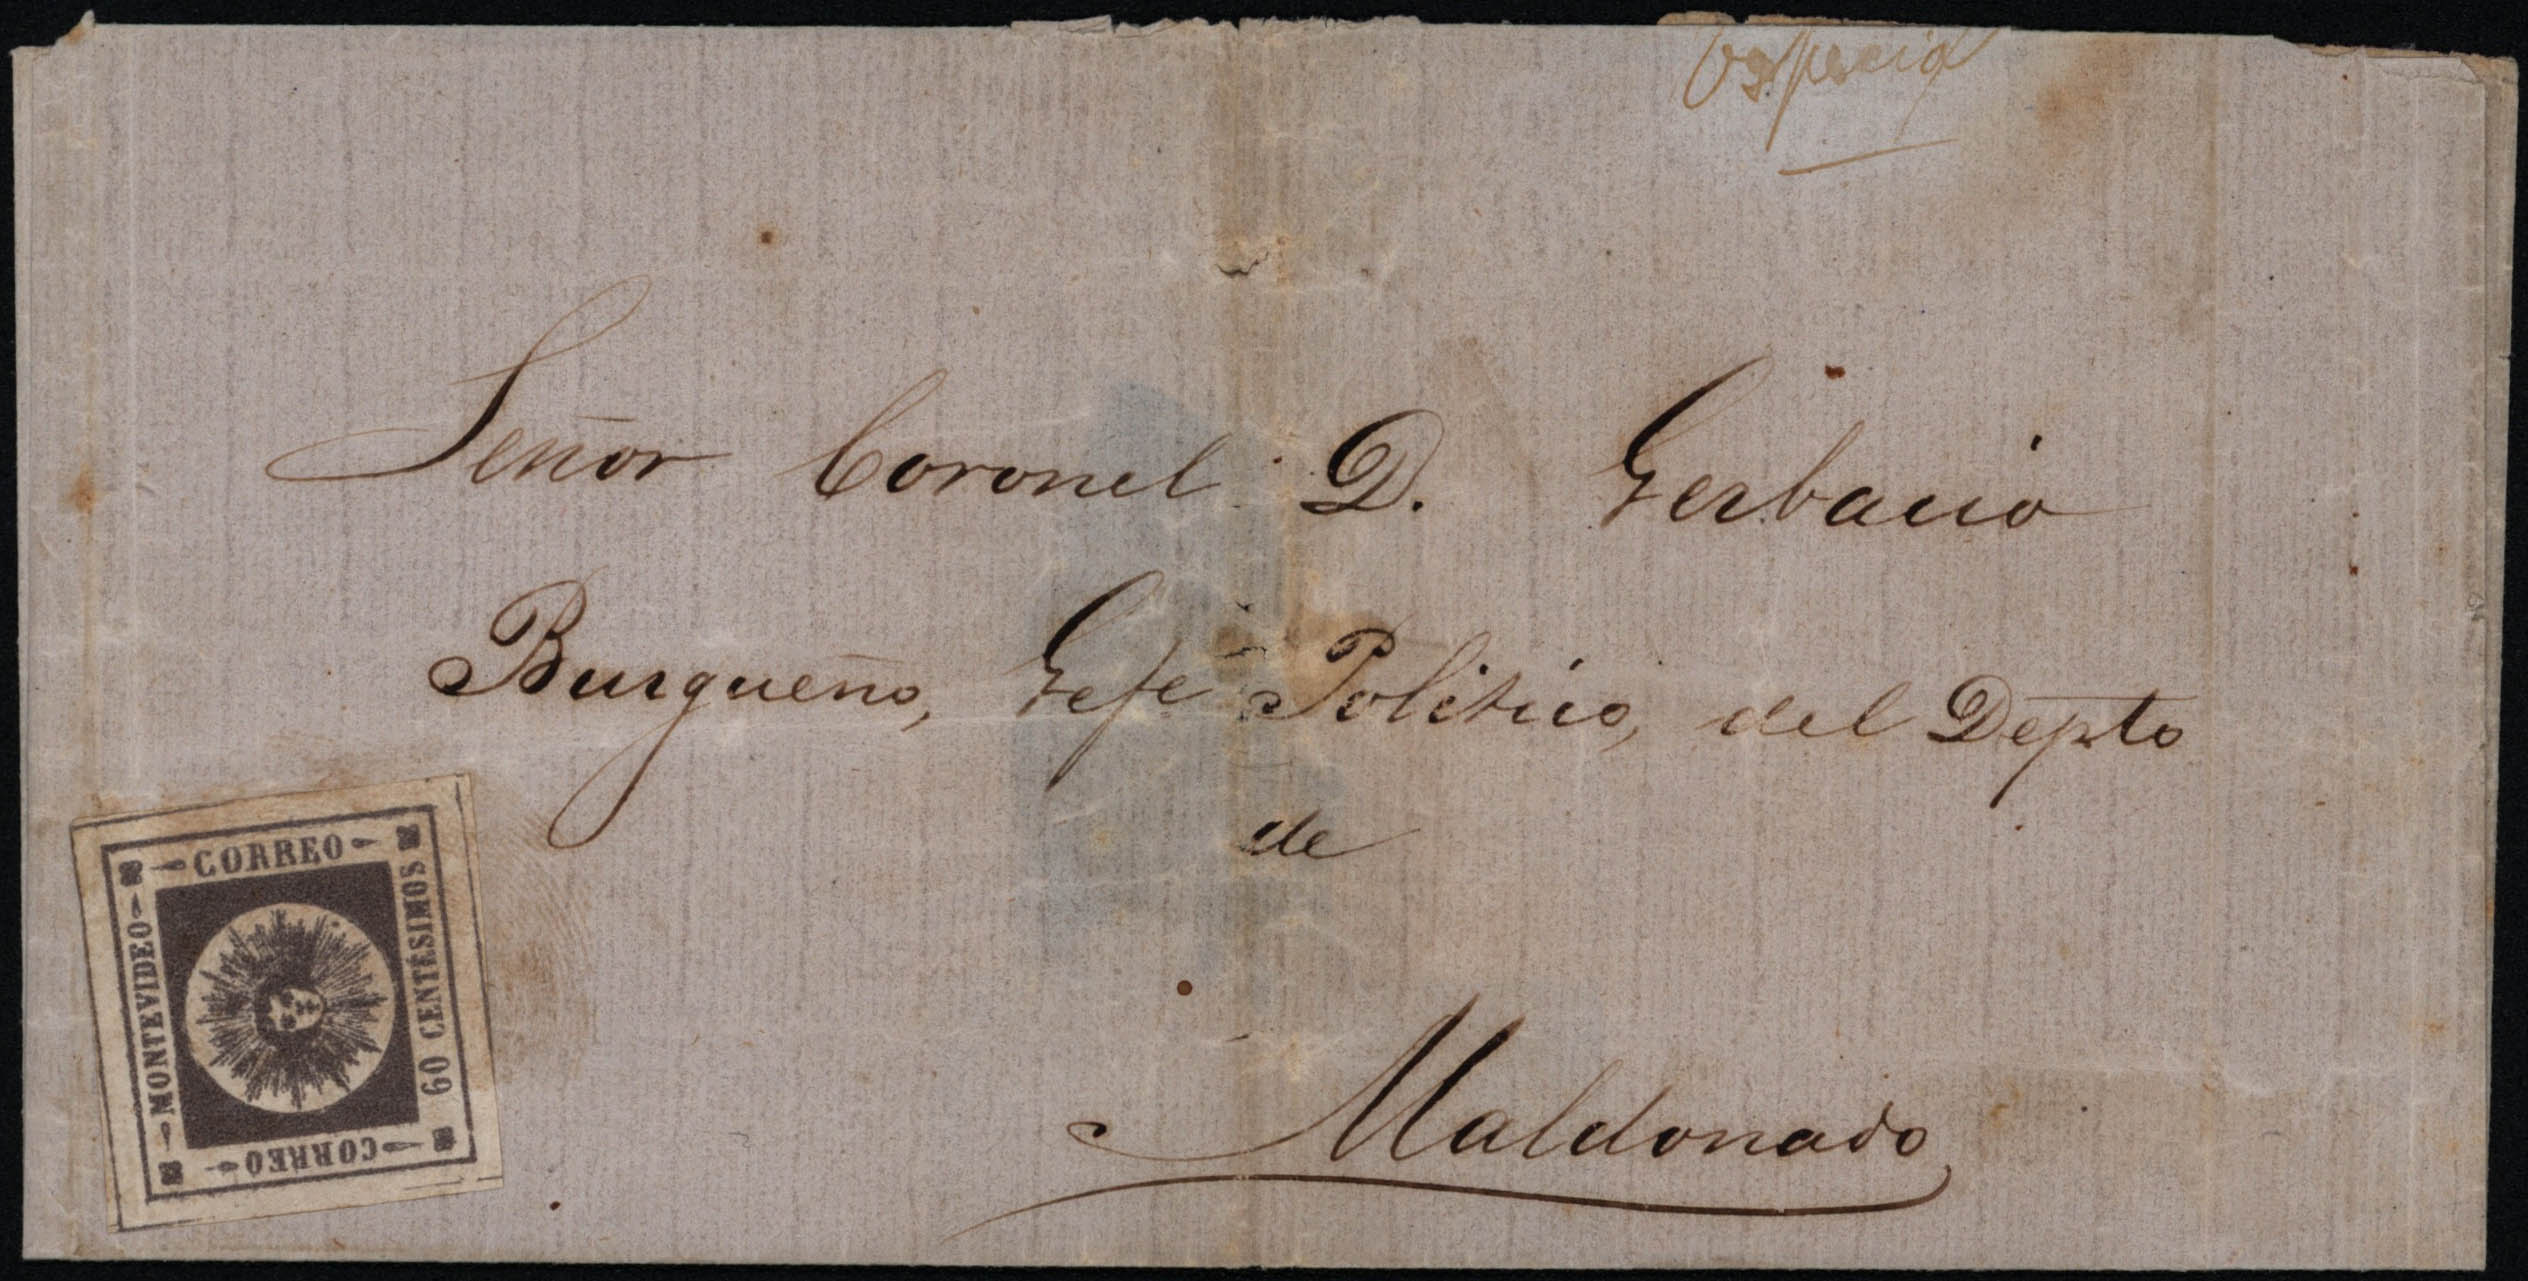 Señor Coronel D. Gerbacio
Burgueño, Gefe Politico, del Depto
de
Maldonado
CORREO
MONTEVIDEO
60 CENTÉSIMOS
CORREO